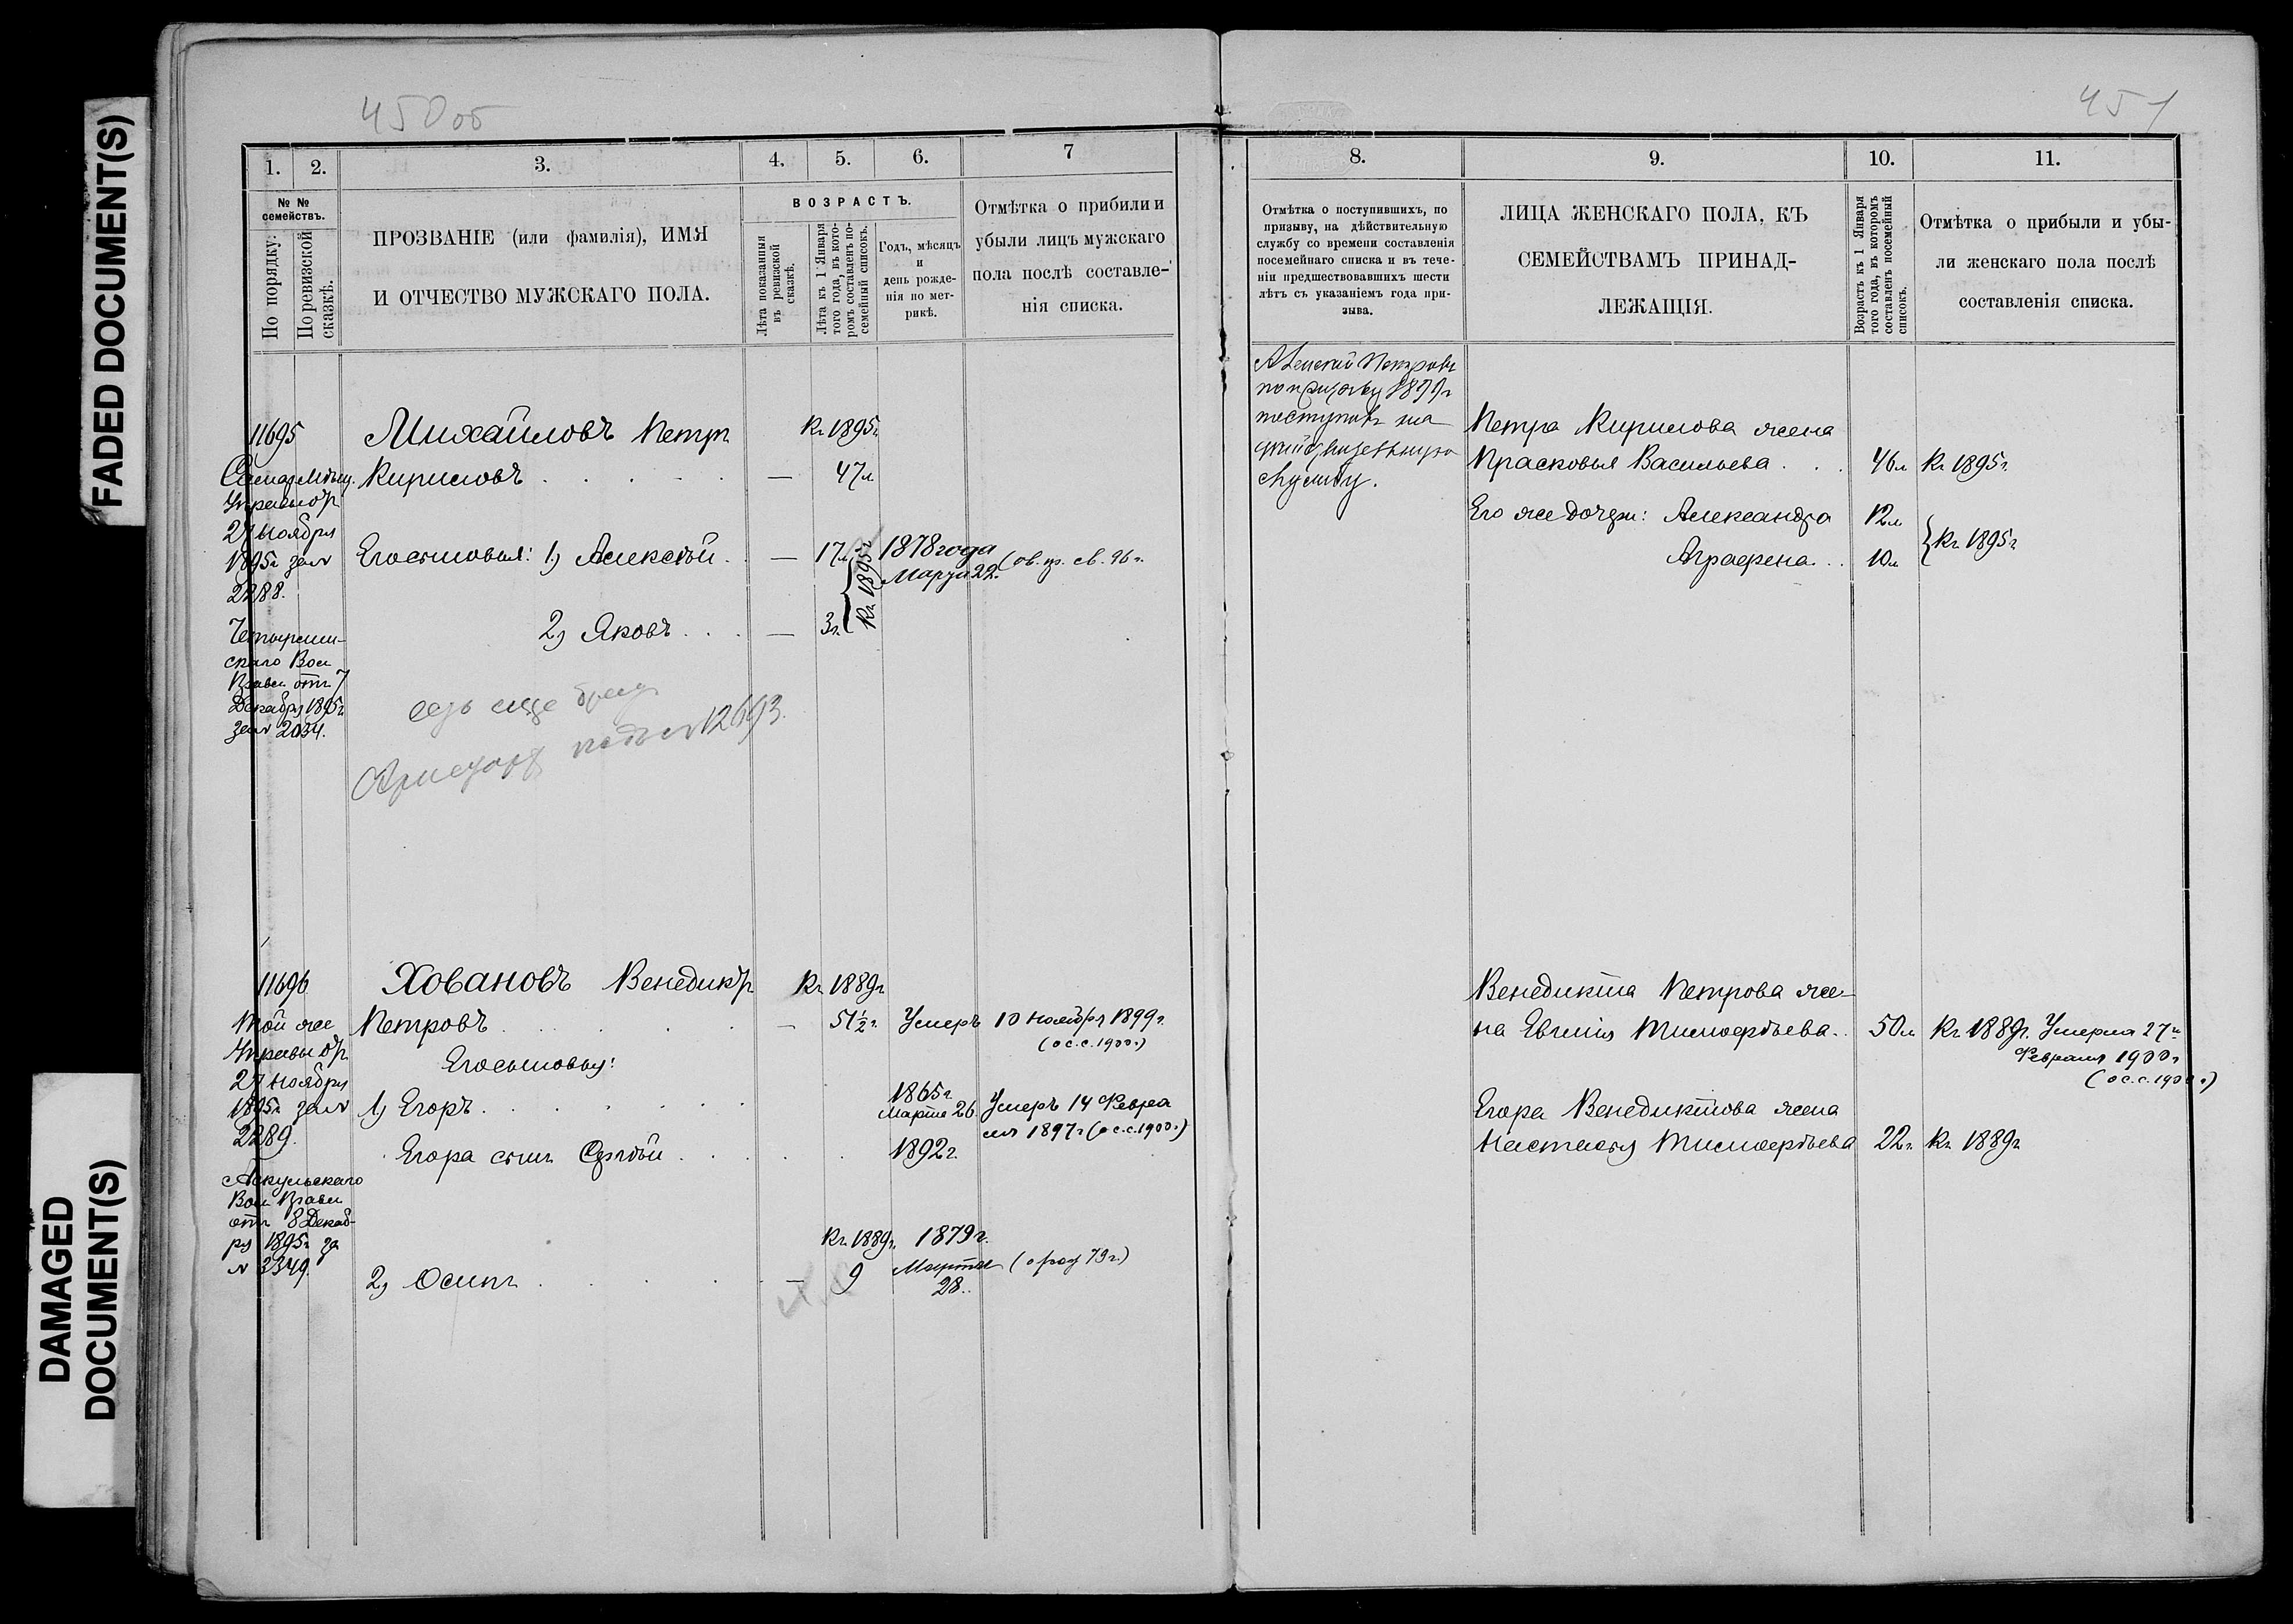 FADED DOCUMENT(S)
DAMAGED
DOCUMENT(S)
450об
1. 2. 3. 4. 5. 6. 7
№ №
семействъ.
По порядку.
По ревизской
сказкѣ.
ПРОЗВАНІЕ (или фамилія), ИМЯ
И ОТЧЕСТВО МУЖСКАГО ПОЛА.
ВОЗРАСТЪ.
Лѣта показанныя
въ ревизской
сказкѣ.
Лѣта къ 1 Января
того года, въ кото-
ромъ составленъ по-
семейный списокъ.
Годъ, мѣсяцъ
и
день рожде-
нія по мет-
рикѣ.
Отмѣтка о прибыли и
убыли лицъ мужскаго
пола послѣ составле-
нія списка.
11695
Самар. Мѣщ.
Управы от
27 Ноября
1895г за №
2288.
скаго Вол
Правл отъ 7
Декабря 1895г
за № 2034.
Михайловъ Петръ
Кириловъ — 47л
Къ 1895г
Его сыновья: 1) Алексѣй — 17л 1878 года
Марта 22. (ов. пр. св. 96 г.
2) Яковъ — 3г.
Къ 1895г
есь еще
подъ № 12693.
11696
Той же
Управы от
27 Ноября
1895г за №
2289.
Вол Правл
отъ 8 Декаб-
ря 1895г за
№ 3349.
Ховановъ Венедиктъ
Къ 1889г
Петровъ — 51½ г. Умеръ 10 Ноября 1899г.
(о с. с. 1900г.)
Его сыновья:
1) Егоръ 1865г.
Марта 26. Умеръ 14 Февра
ля 1897г (о с. с. 1900г.)
Егора сынъ 1892г.
Къ 1889г. 1879г.
2) Осипъ — 9 Марта
28. (о род 79г.)
451
8. 9. 10. 11.
Отмѣтка о поступившихъ, по
призыву, на дѣйствительную
службу со времени составленія
посемейнаго списка и въ тече-
ніи предшествовавшихъ шести
лѣтъ съ указаніемъ года при-
зыва.
ЛИЦА ЖЕНСКАГО ПОЛА, КЪ
СЕМЕЙСТВАМЪ ПРИНАД-
ЛЕЖАЩІЯ.
Возрастъ къ 1 Января
того года, въ которомъ
составленъ посемейный
списокъ.
Отмѣтка о прибыли и убы-
ли женскаго пола послѣ
составленія списка.
Алексѣй Петровъ
по призыву 1899г
поступилъ на
дѣйствительную
службу.
Петра Кирилова жена
Прасковья Васильева 46л Къ 1895г.
Его же дочери: Александра 12л
Аграфена 10л
Къ 1895г
Венедикта Петрова же-
на Евгенія Тимофѣева 50л Къ 1889г. Умерла 27го
Февраля 1900г
(о с. с. 1900г.)
Егора Венедиктова жена
Настасья Тимофѣева 22г. Къ 1889г